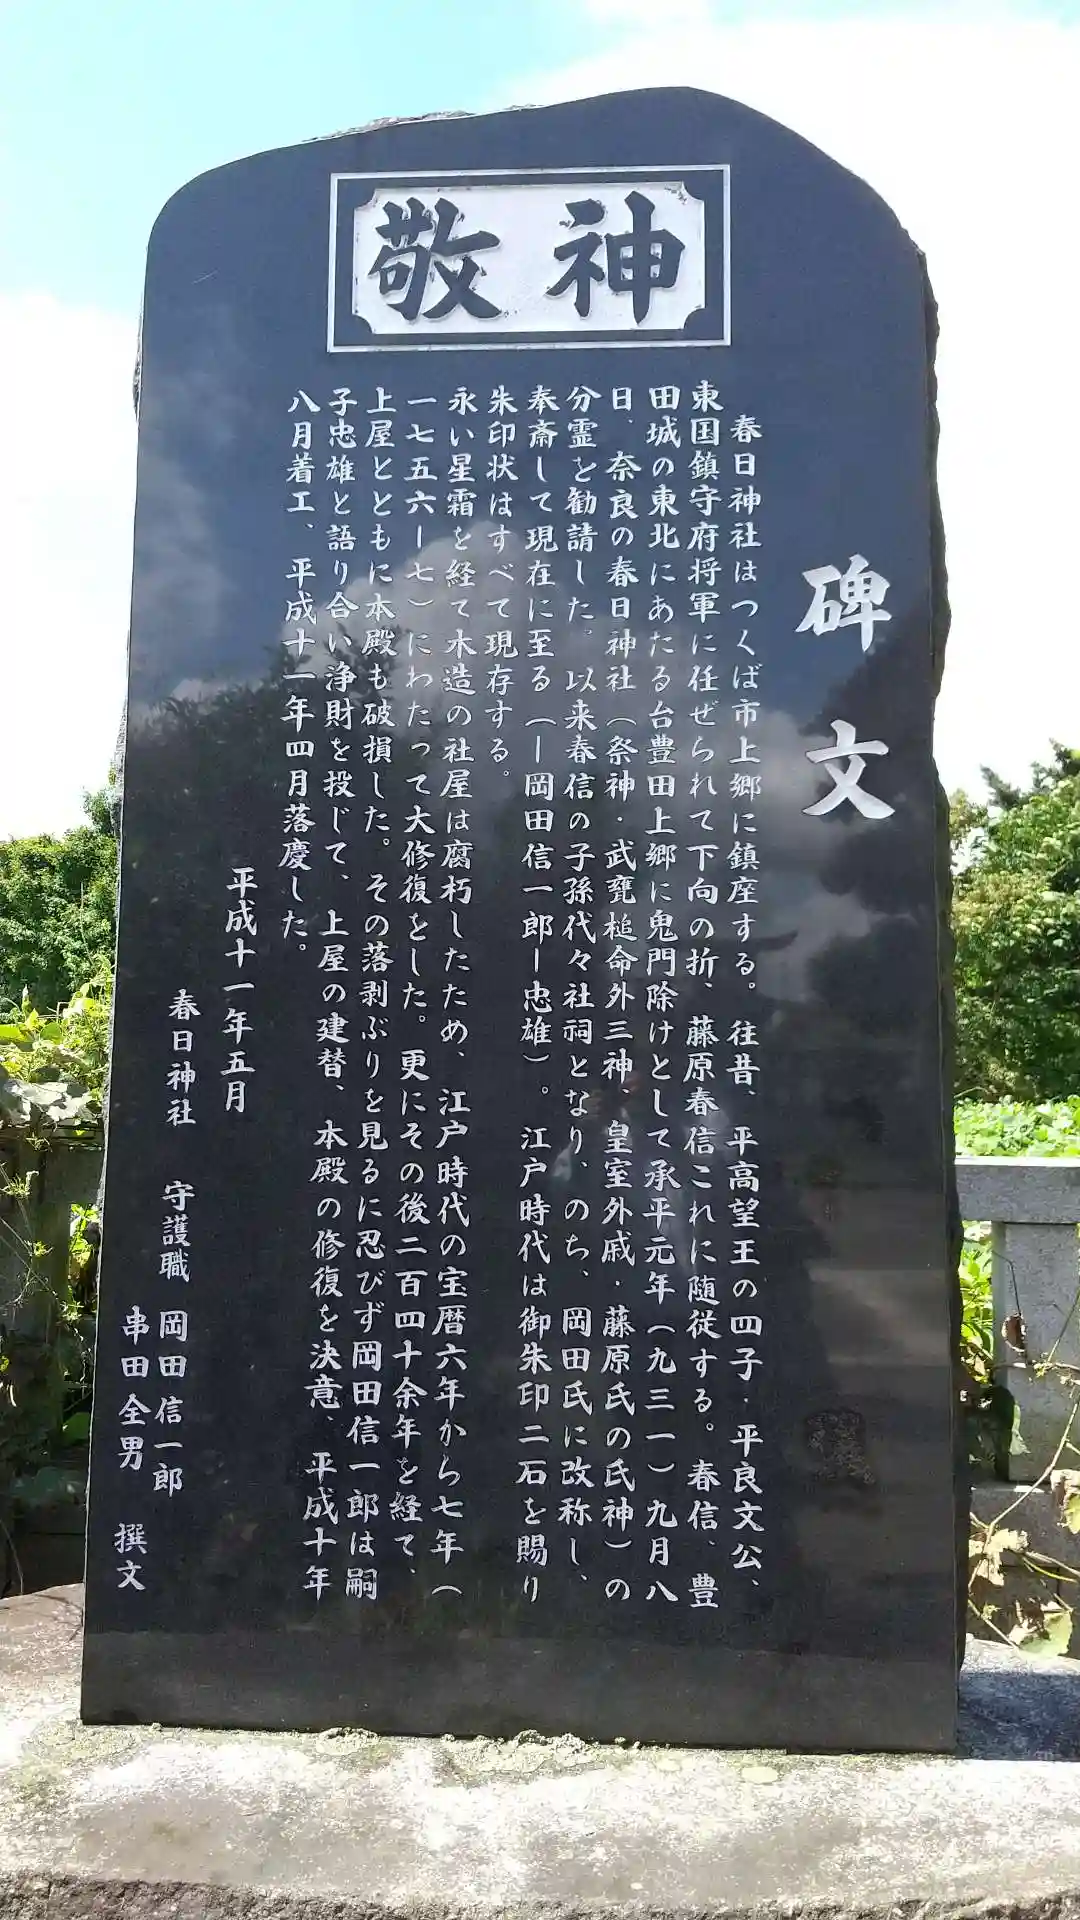 神敬
碑文
春日神社はつくば市上郷に鎮座する。往昔、平高望王の四子・平良文公、
東国鎮守府将軍に任ぜられて下向の折、藤原春信これに随従する。春信、豊
田城の東北にあたる台豊田上郷に鬼門除けとして承平元年（九三一）九月八
日、奈良の春日神社（祭神・武甕槌命外三神、皇室外戚・藤原氏の氏神）の
分霊を勧請した。以来春信の子孫代々社祠となり、のち、岡田氏に改称し、
奉斎して現在に至る（ー岡田信一郎ー忠雄）。江戸時代は御朱印二石を賜り
朱印状はすべて現存する。
永い星霜を経て木造の社屋は腐朽したため、江戸時代の宝暦六年から七年（
一七五六ー七）にわたって大修復をした。更にその後二百四十余年を経て、
上屋とともに本殿も破損した。その落剥ぶりを見るに忍びず岡田信一郎は嗣
子忠雄と語り合い浄財を投じて、上屋の建替、本殿の修復を決意、平成十年
八月着工、平成十一年四月落慶した。
平成十一年五月
春日神社　守護職　岡田信一郎
串田全男　撰文